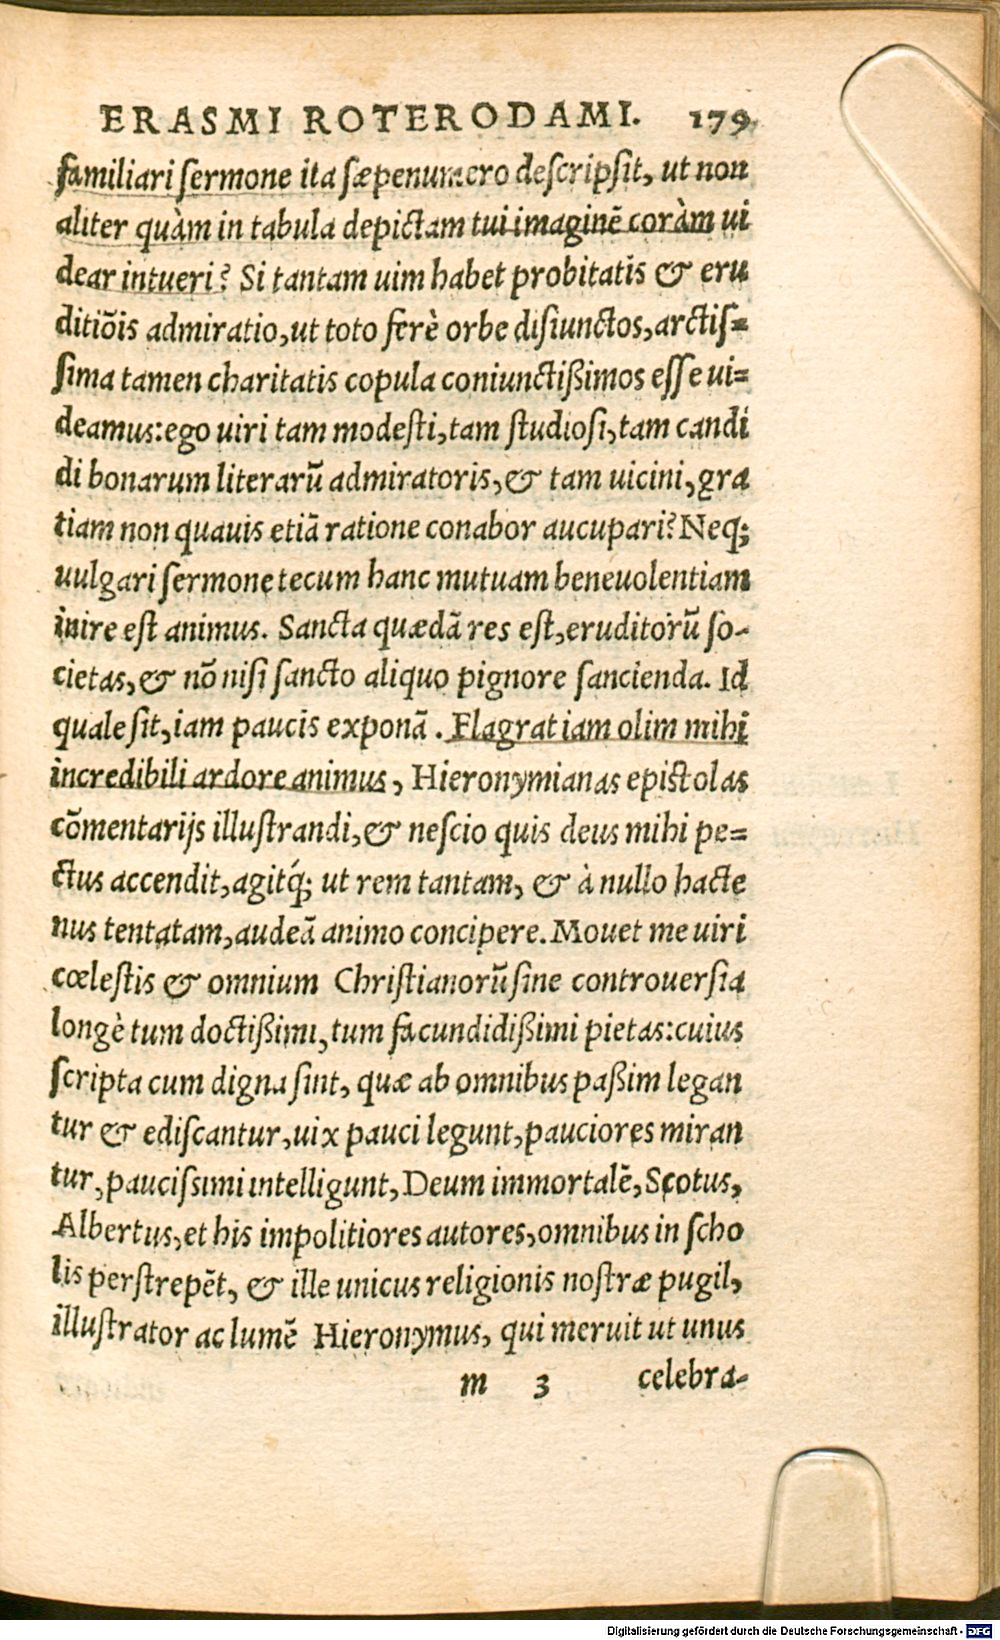 ERASMI ROTERODAMI. 179
familiari sermone ita sæpenumero descripsit, ut non
aliter quàm in tabula depictam tui imaginẽ coràm ui
dear intueri? Si tantam uim habet probitatis & eru
ditiõis admiratio, ut toto ferè orbe disiunctos, arctis=
sima tamen charitatis copula coniunctißimos esse ui=
deamus: ego uiri tam modesti, tam studiosi, tam candi
di bonarum literarũ admiratoris, & tam uicini, gra
tiam non quauis etiã ratione conabor aucupari? Neq;
uulgari sermone tecum hanc mutuam beneuolentiam
inire est animus. Sancta quædã res est, eruditorũ so-
cietas, & nõ nisi sancto aliquo pignore sancienda. Id
quale sit, iam paucis exponã. Flagrat iam olim mihi
incredibili ardore animus, Hieronymianas epistolas
cõmentarijs illustrandi, & nescio quis deus mihi pe=
ctus accendit, agitq́; ut rem tantam, & à nullo hacte
nus tentatam, audeã animo concipere. Mouet me uiri
cœlestis & omnium Christianorũ sine controuersia
longè tum doctißimi, tum facundidißimi pietas: cuius
scripta cum digna sint, quæ ab omnibus paßim legan
tur & ediscantur, uix pauci legunt, pauciores miran
tur, paucissimi intelligunt, Deum immortalẽ, Scotus,
Albertus, et his impolitiores autores, omnibus in scho
lis perstrepẽt, & ille unicus religionis nostræ pugil,
illustrator ac lumẽ Hieronymus, qui meruit ut unus
m 3 celebra-
Digitalisierung gefördert durch die Deutsche Forschungsgemeinschaft - DFG